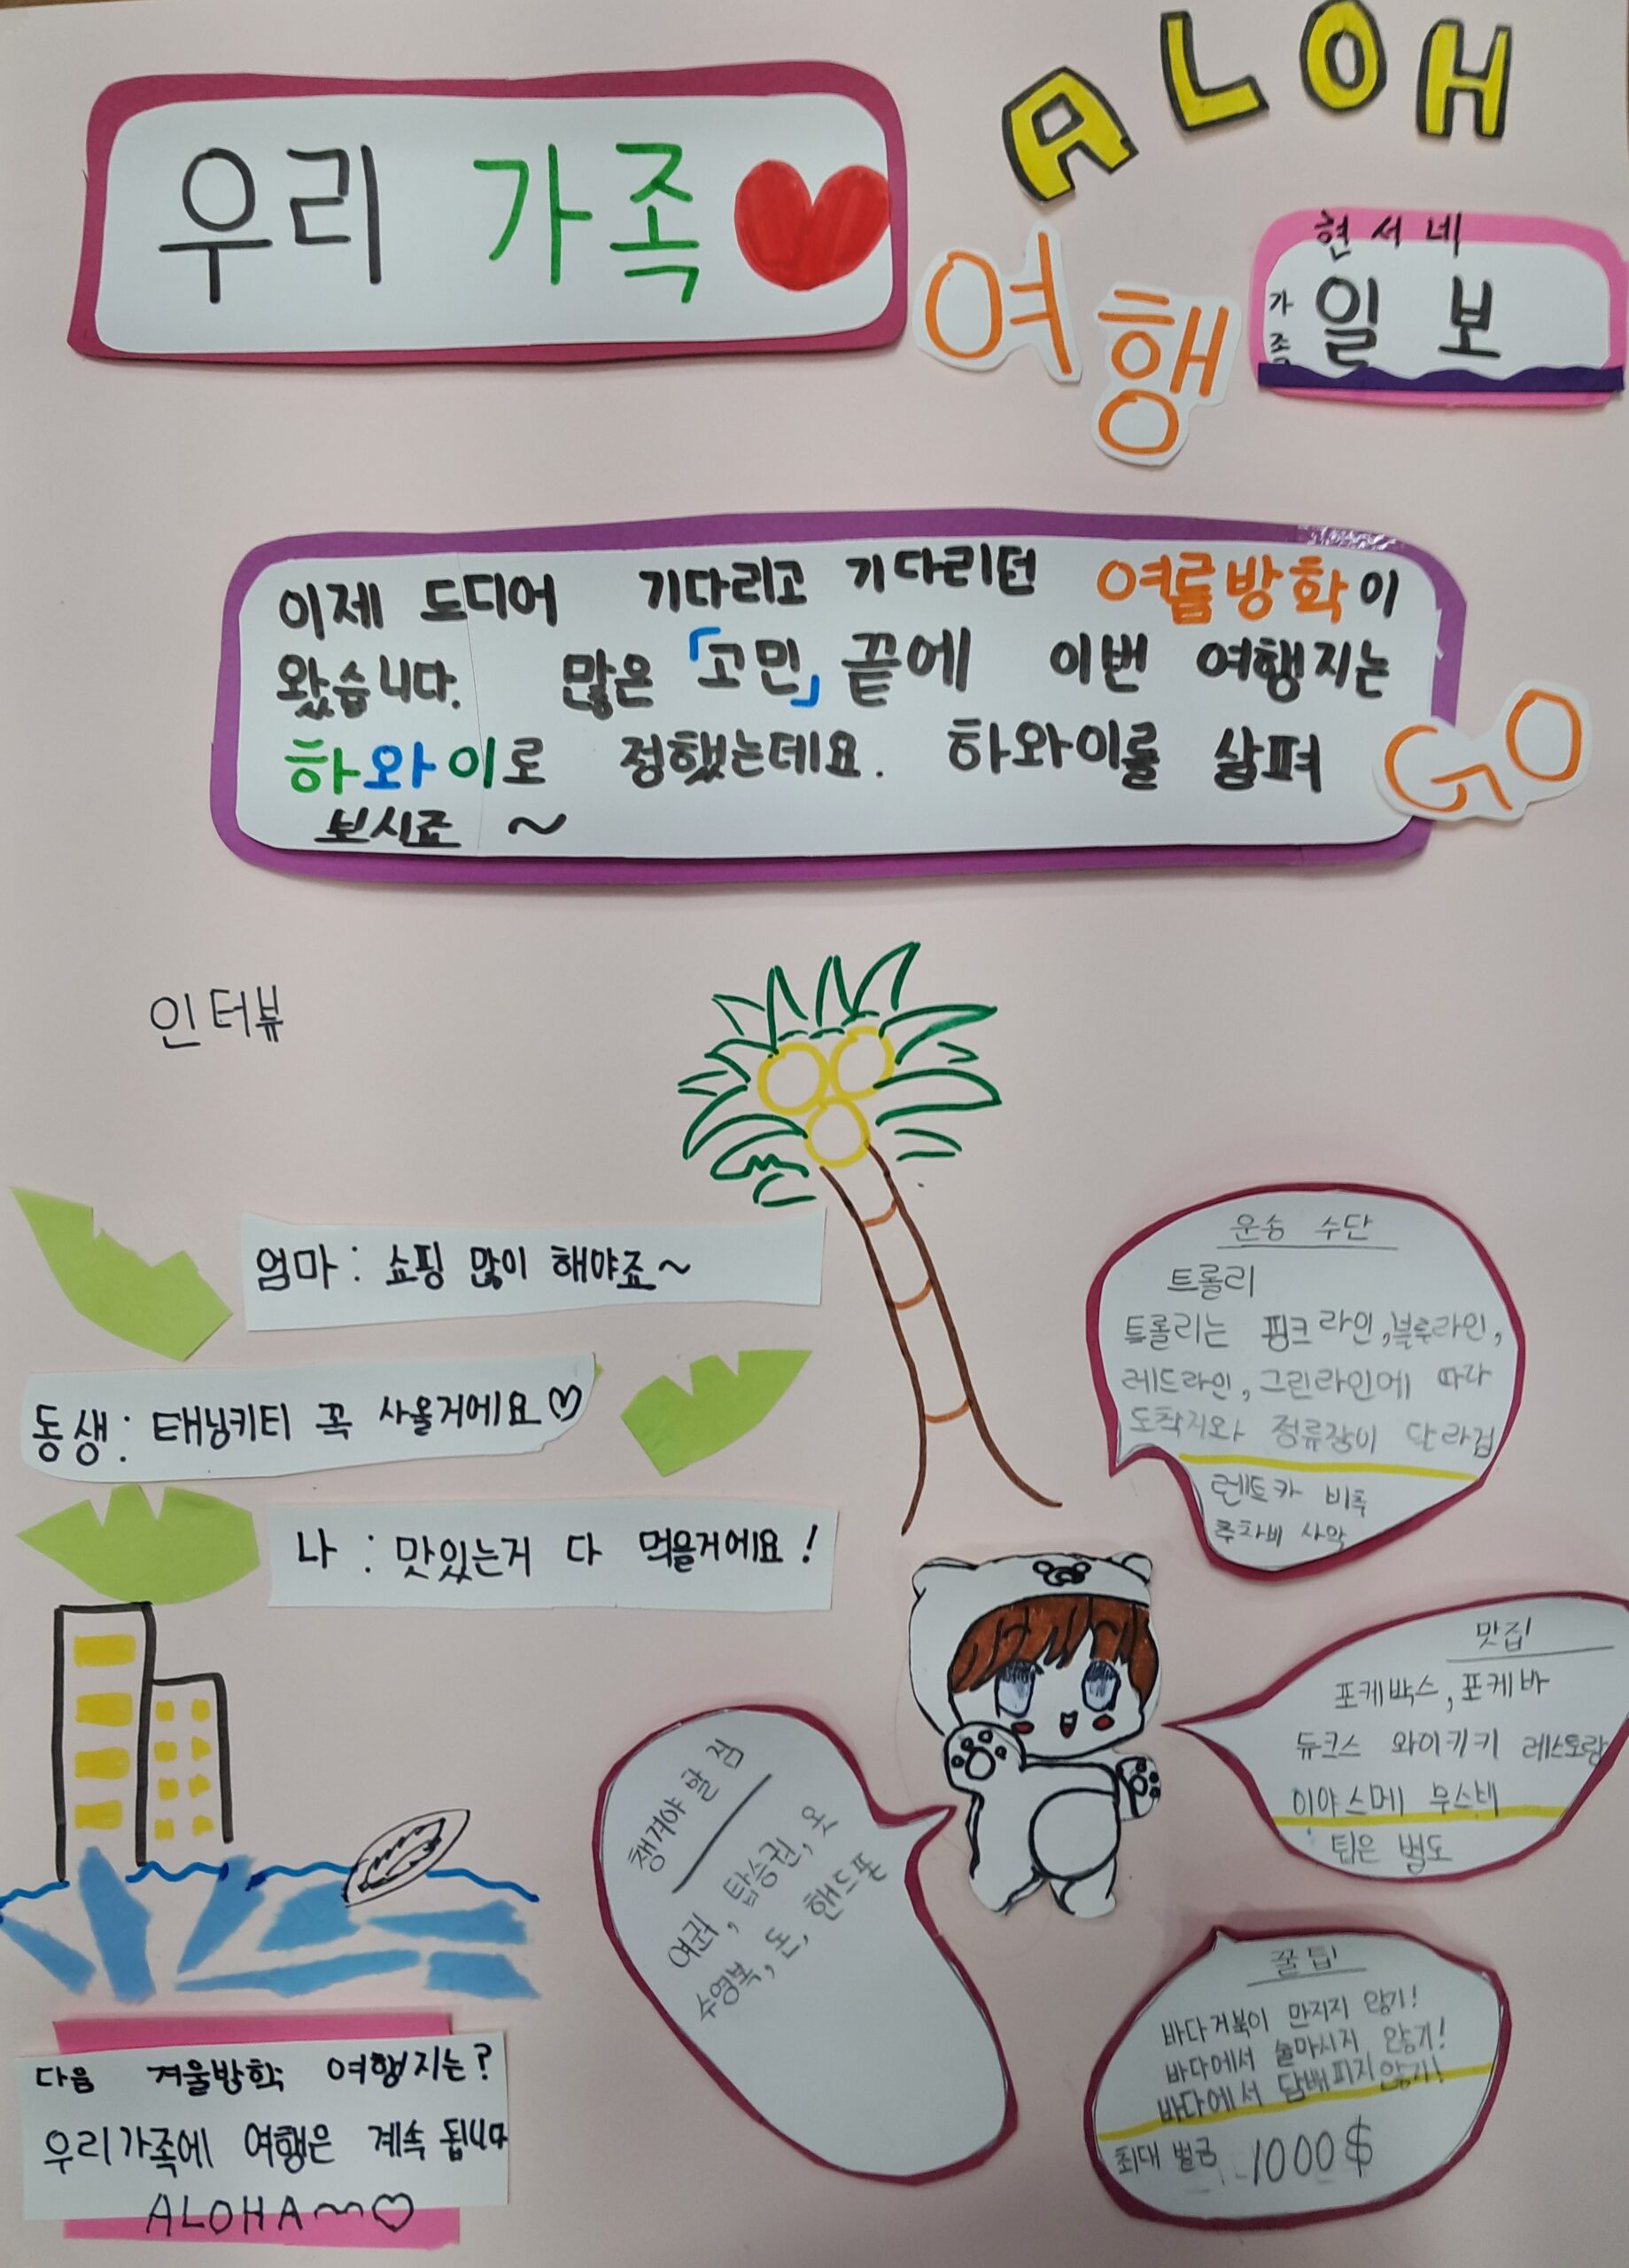 ALOH
우리 가족
여행
현서네
가족
일보
이제 드디어 기다리고 기다리던 여름방학이
왔습니다. 많은 「고민」 끝에 이번 여행지는
하와이로 정했는데요. 하와이를 살펴
보시죠 ~
GO
인터뷰
엄마 : 쇼핑 많이 해야죠~
동생 : 태닝키티 꼭 사올거에요♡
나 : 맛있는거 다 먹을거에요!
운송 수단
트롤리
트롤리는 핑크라인, 블루라인,
레드라인, 그린라인에 따라
도착지와 정류장이 달라검
렌트카 비추
주차비 사악
맛집
포케박스, 포케바
듀크스 와이키키 레스토랑
이야스메 무스비
팁은 별도
챙겨야 할 점
여권, 탑승권, 옷
수영복, 돈, 핸드폰
꿀팁
바다거북이 만지지 않기!
바다에서 술마시지 않기!
바다에서 담배피지 않기!
최대 벌금 1000$
다음 겨울방학 여행지는?
우리가족에 여행은 계속 됩니다
ALOHA~♡